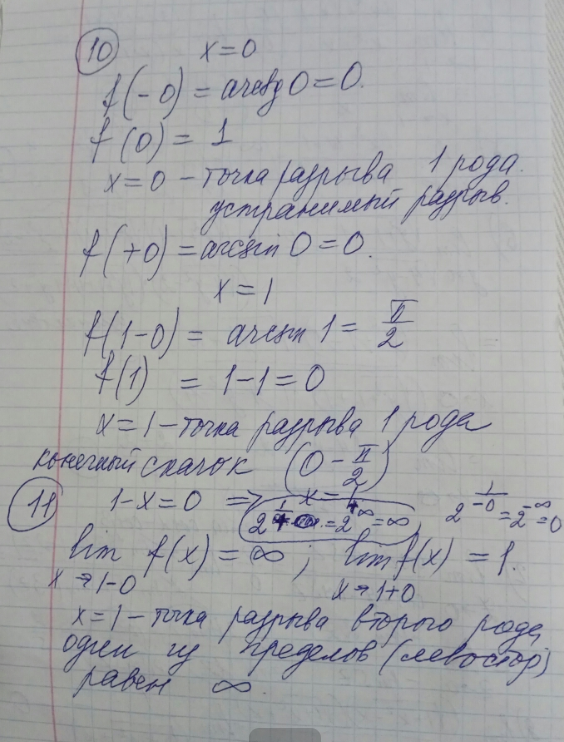 10 x=0
f(-0) = arctg 0 = 0.
f(0) = 1
x=0 – точка разрыва 1 рода.
устранимый разрыв.
f(+0) = arcsin 0 = 0.
x = 1
f(1-0) = arcsin 1 = π/2
f(1) = 1-1 = 0
x=1 – точка разрыва 1 рода
конечный скачок (0 - π/2)
11 1-x=0 ⇒ x=1
= 2^∞ = ∞, 2^(1/-0) = 2^-∞ = 0
lim f(x) = ∞ ; lim f(x) = 1.
x→1-0 x→1+0
x=1 – точка разрыва второго рода,
один из пределов (левостор)
равен ∞.